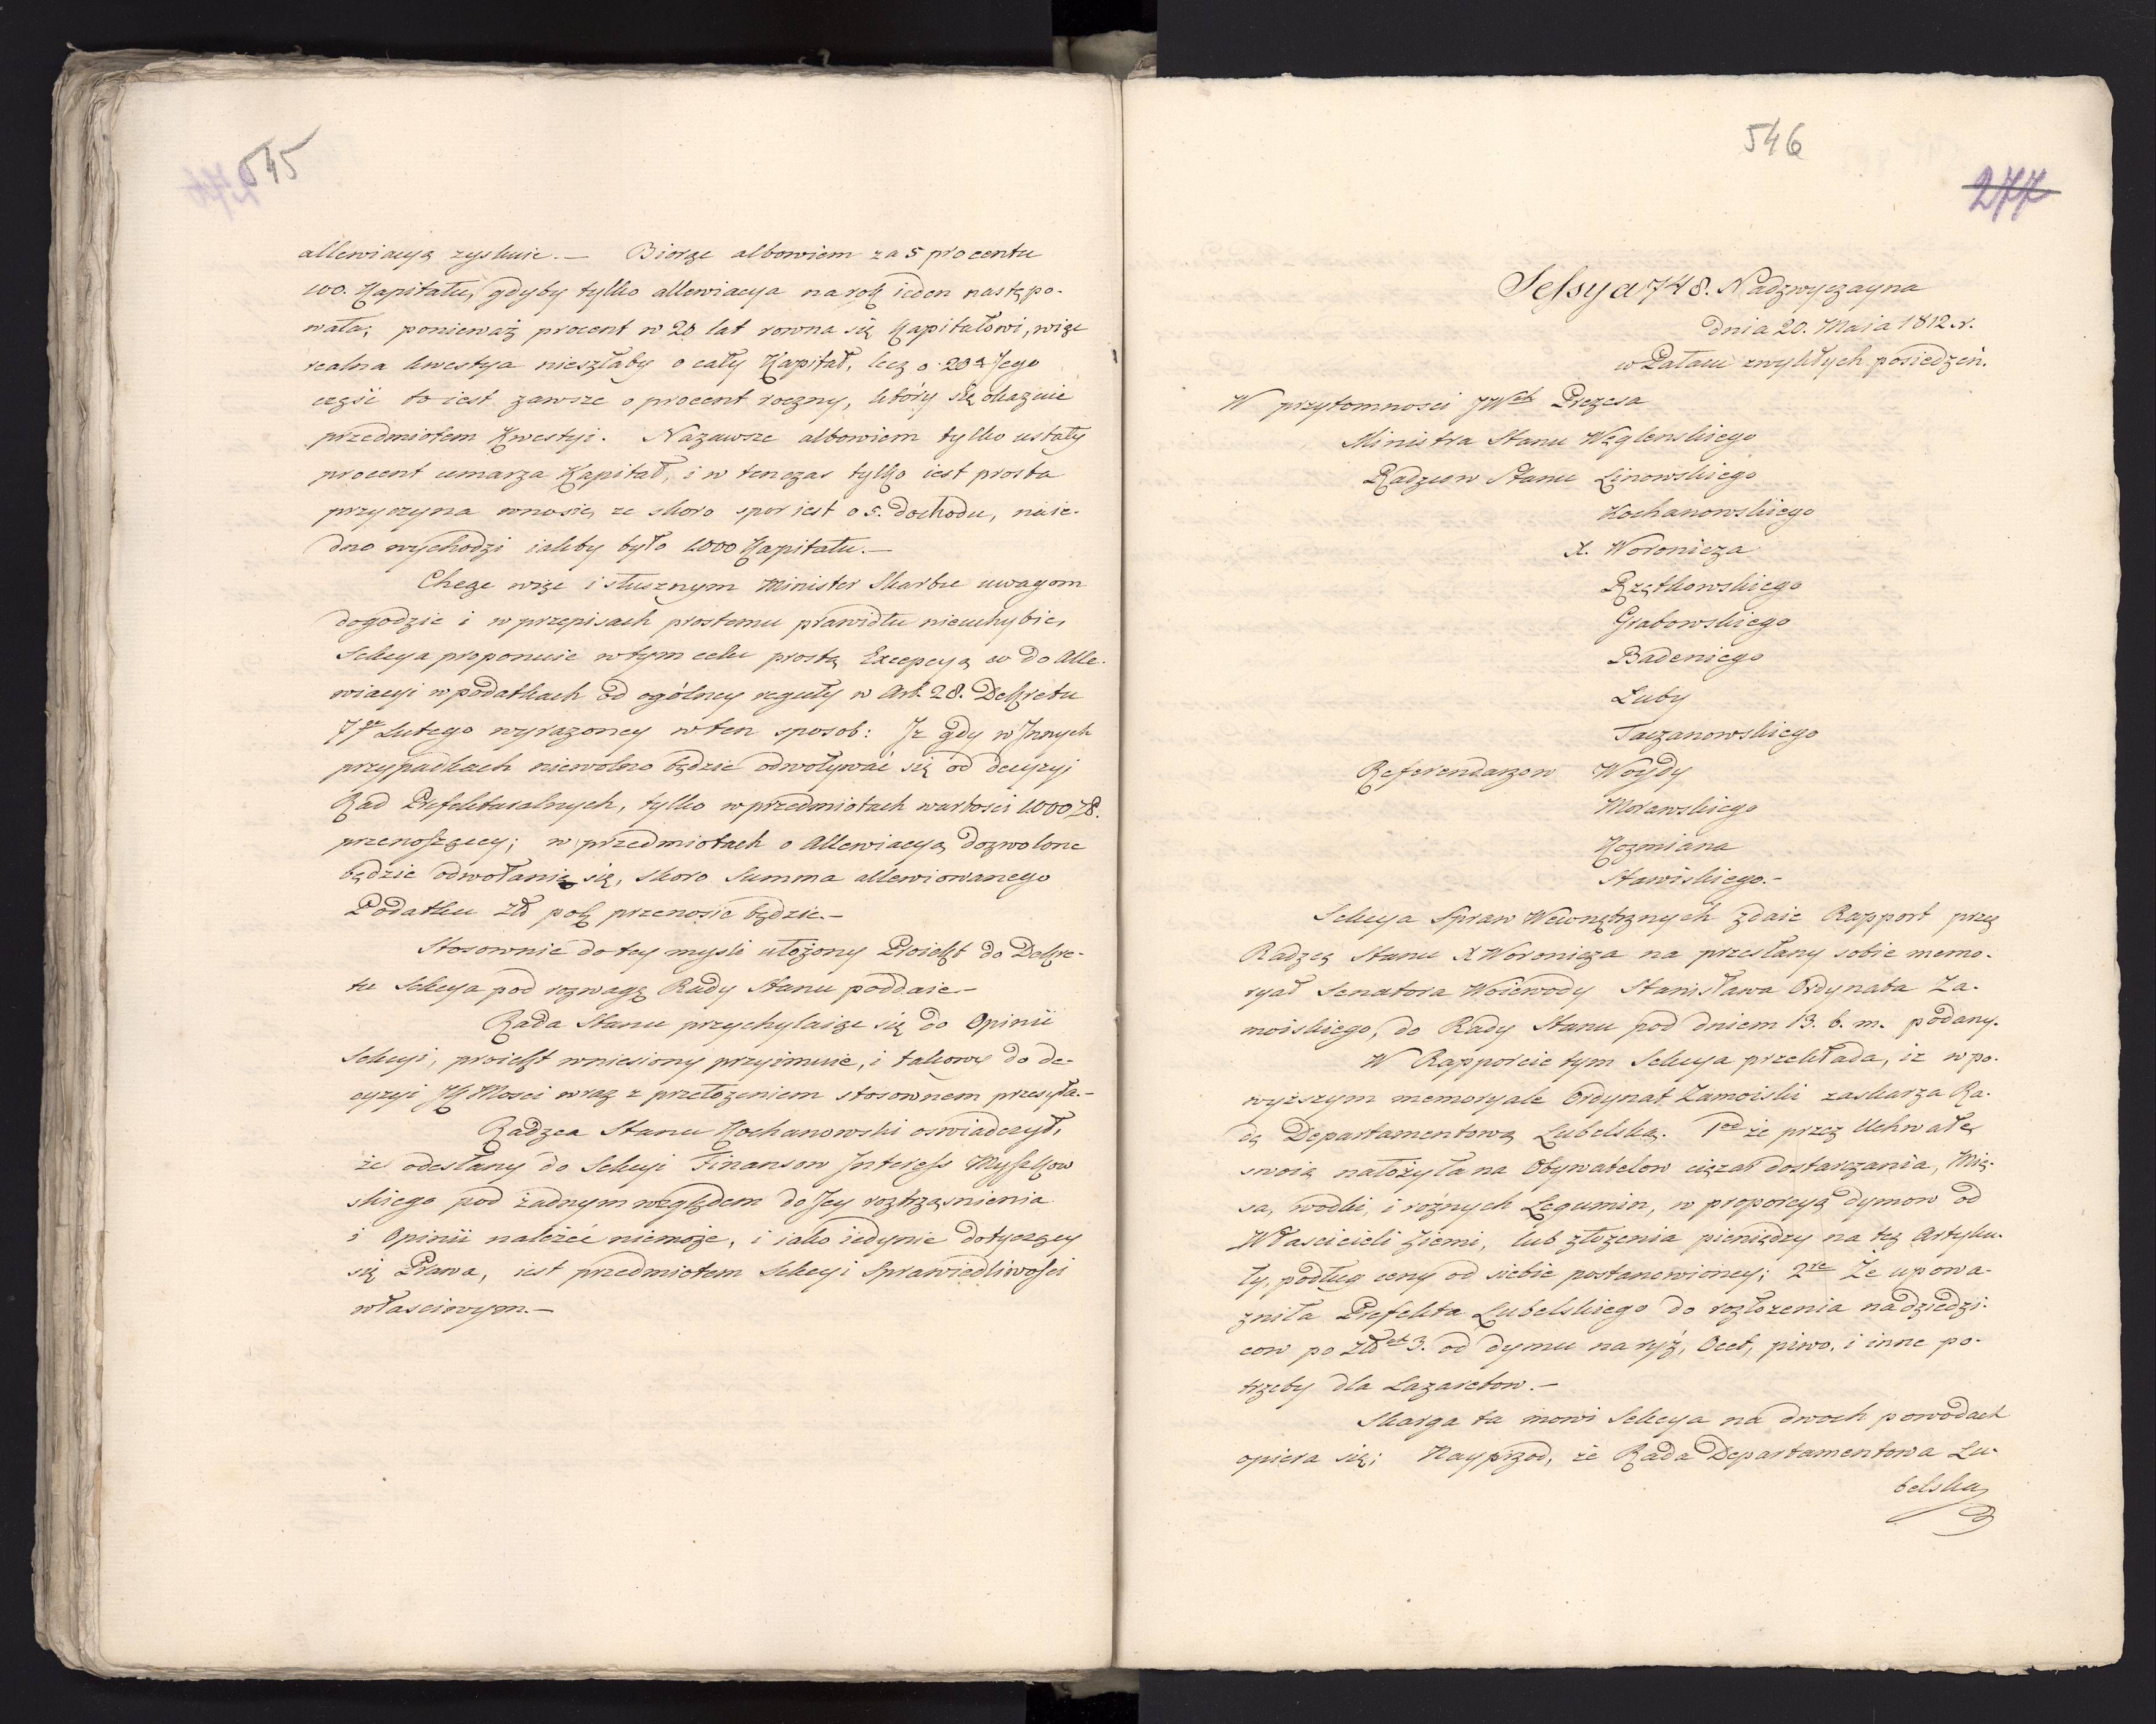 545
allewiacyą zyskuie. — Biorąc albowiem za 5 procentu
100. Kapitału, gdyby tylko allewiacya na rok ieden nastąpo-
wała; ponieważ procent w 20 lat rowna się Kapitałowi, więc
realna kwestya nieszłaby o cały Kapitał, lecz o 20ą Jego
część to iest zawsze o procent roczny, który się okazuie
przedmiotem Kwestyi. Nazawsze albowiem tylko ustały
procent umarza Kapitał, i w tenczas tylko iest prosta
przyczyna wnosić, ze skoro spor iest o 5. dochodu, naie-
dno wychodzi iakby było 1000 Kapitału. —
Chcąc więc i słusznym Minister Skarbu uwagom
dogodzić i w przepisach prostemu prawidłu nieuchybić,
Sekcya proponuie w tym celu prostą Excepcyą co do Alle-
wiacyi w podatkach od ogólney reguły w Art. 28. Dekretu
7go Lutego wyrazoney w ten sposob: Iz gdy w Innych
przypadkach niewolno będzie odwoływać się od decyzyi
Rad Prefekturalnych, tylko w przedmiotach wartosci 1000 Zł.
przenoszącey; w przedmiotach o Allewiacyą dozwolone
będzie odwołanie się, skoro Summa allewiowanego
Podatku Złł pol. przenosić będzie. —
Stosownie do tey mysli ułożony Proiekt do Dekre-
tu Sekcya pod rozwagę Rady Stanu poddaie —
Rada Stanu przychylaiąc się do Opinii
Sekcyi, proiekt wniesiony przyimuie, i takowy do de-
cyzyi JKMosci wraz z przełożeniem stosownem przesyła. —
Radzca Stanu Kochanowski oswiadczył,
że odesłany do Sekcyi Finansow Interess Myszkow
skiego pod żadnym względem do Jey roztrząsnienia
i Opinii należéć niemoże, i iako iedynie dotyczący
się Prawa, iest przedmiotem Sekcyi Sprawiedliwości
własciwym. —
546
277
Sessya 748. Nadzwyczayna
dnia 20. Maia 1812 r.
w Pałacu zwykłych posiedzeń.
W przytomnosci JWch Prezesa
Ministra Stanu Węglenskiego
Radzcow Stanu Linowskiego
Kochanowskiego
X. Woronicza
Rzętkowskiego
Grabowskiego
Badeniego
Luby
Taczanowskiego
Referendarzow Woydy
Morawskiego
Kozmiana
Stawiskiego. —
Sekcya Spraw Wewnętrznych zdaie Rapport przez
Radzcę Stanu X Woronicza na przesłany sobie memo-
ryał Senatora Woiewody Stanisława Ordynata Za-
moiskiego, do Rady Stanu pod dniem 13. b. m. podany.
W Rapporcie tym Sekcya przekłada, iz w po-
wyższym memoryale Ordynat Zamoiski zaskarza Ra-
dę Departamentową Lubelską. 1od że przez Uchwałę
swoią nałożyła na Obywatelow ciężar dostarczania, Mię-
sa, wodki, i rożnych Legumin, w proporcyą dymow od
Właścicieli Ziemi, lub złożenia pieniędzy na tez Artyku-
ły, podług ceny od siebie postanowioney; 2re Że upowa-
zniła Prefekta Lubelskiego do rozłożenia na dziedzi-
cow po Złłch 3. od dymu na ryż, Ocet, piwo, i inne po-
trzeby dla Lazaretow. —
Skarga ta mowi Sekcya na dwoch powodach
opiera się; Nayprzod, że Rada Departamentowa Lu-
belska